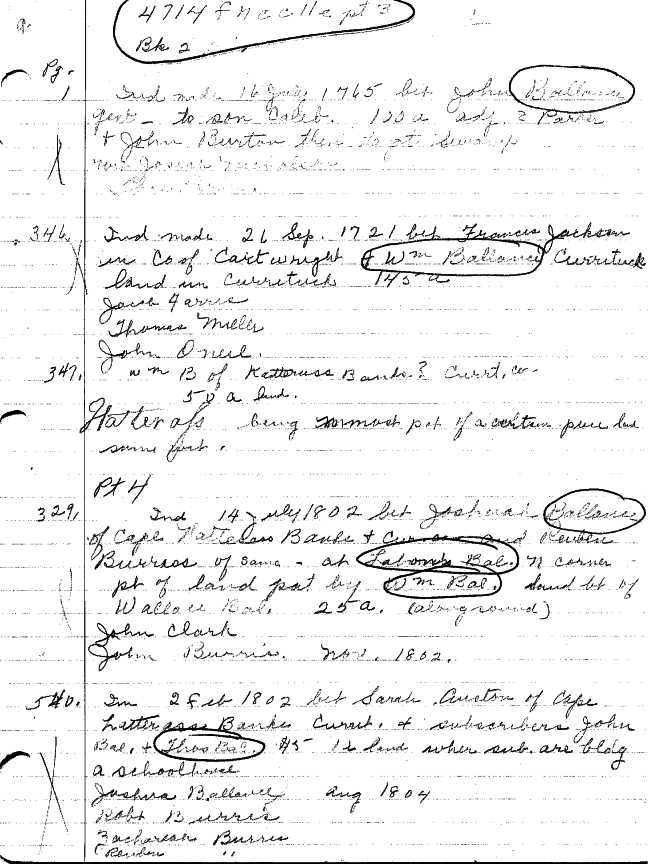 4714
pt 3
Bk 2
Pg.
1 Ind made 16 July 1765 bet John Ballance
gent - to son Caleb. 100 a adj. ? Parker
+ John Burton then to pt
346. Ind made 26 Sep. 1721 bet Francis Jackson
in Co of Cartwright & Wm Ballance Currituck
land in Currituck 145 a
Jacob Farris
Thomas Miller
John Oneil.
347. Wm B of Katteruss Banks? Currt. co.
50 a land.
Hatterass being pt of a certain piece land
same
Pt 4
329. Ind 14 July 1802 bet Joshuah Ballance
of Cape Hatterass Banks + and Reuben
Burriss of same - at Bal. N corner
pt of land pat by Wm Bal. land bt of
Wallace Bal. 25 a. (along round)
John Clark
John Burris. Nov. 1802.
540. Im 2 Feb 1802 bet Sarah Auston of Cape
Hatterass Banks Currit. & subscribers John
Bal. + Thos Bal. $5 1 a land wher sub. are bldg
a schoolhouse
Joshua Ballance Aug 1804
Robt Burris
Zachariah Burris
(Reuben "